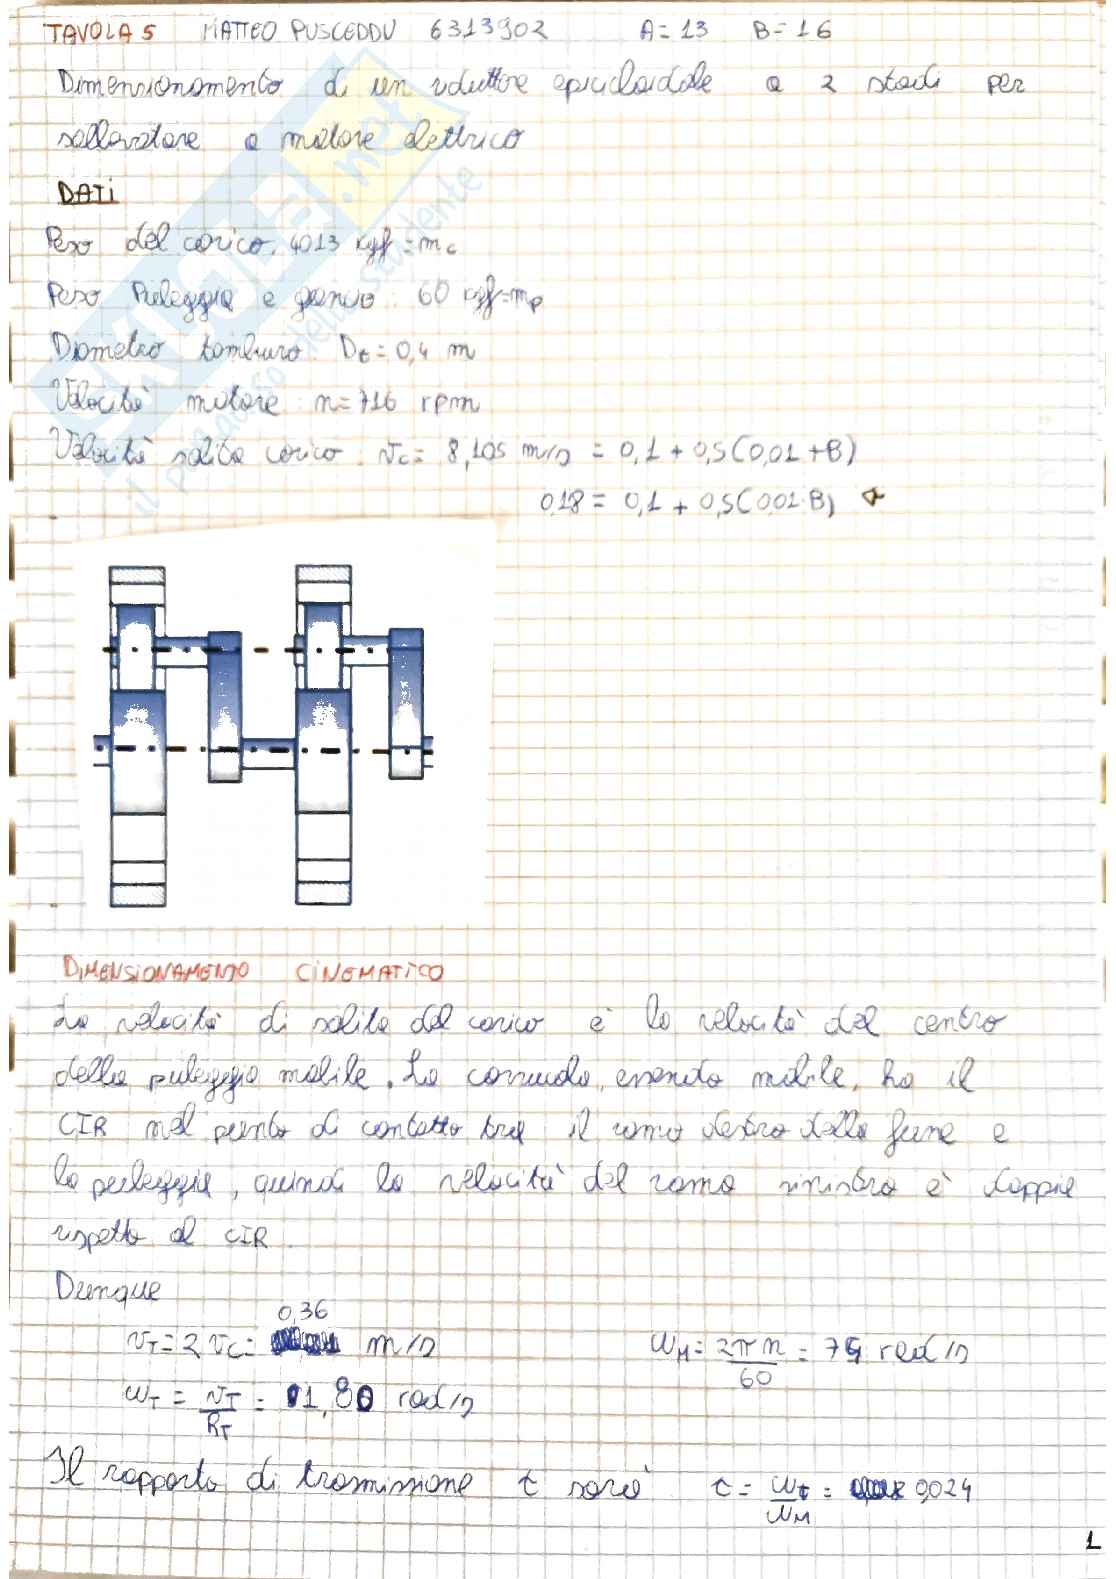 TAVOLA 5 MATTEO PUSCEDDU 6313902 A=13 B=16
Dimensionamento di un riduttore epicicloidale a 2 stadi per
sollevatore a motore elettrico
DATI
Peso del carico. 4013 kgf = mc
Peso Puleggia e gancio: 60 kgf = mp
Diametro tamburo Dt = 0,4 m
Velocità motore: n = 716 rpm
Velocità salita carico: vc = 8,105 m/s = 0,1 + 0,5(0,01+B)
0,18 = 0,1 + 0,5(0,01·B)
DIMENSIONAMENTO CINEMATICO
La velocità di salita del carico è la velocità del centro
della puleggia mobile. La carrucola, essendo mobile, ha il
CIR nel punto di contatto tra il ramo destro della fune e
la puleggia, quindi la velocità del ramo sinistro è doppia
rispetto al CIR.
Dunque
0,36
vT = 2 vc = m/s ωM = 2πn/60 = 75 rad/s
ωT = vT/RT = 1,80 rad/s
Il rapporto di trasmissione τ sarà τ = ωt/ωM = 0,024
1
SKUOLA.net
il paradiso dello studente